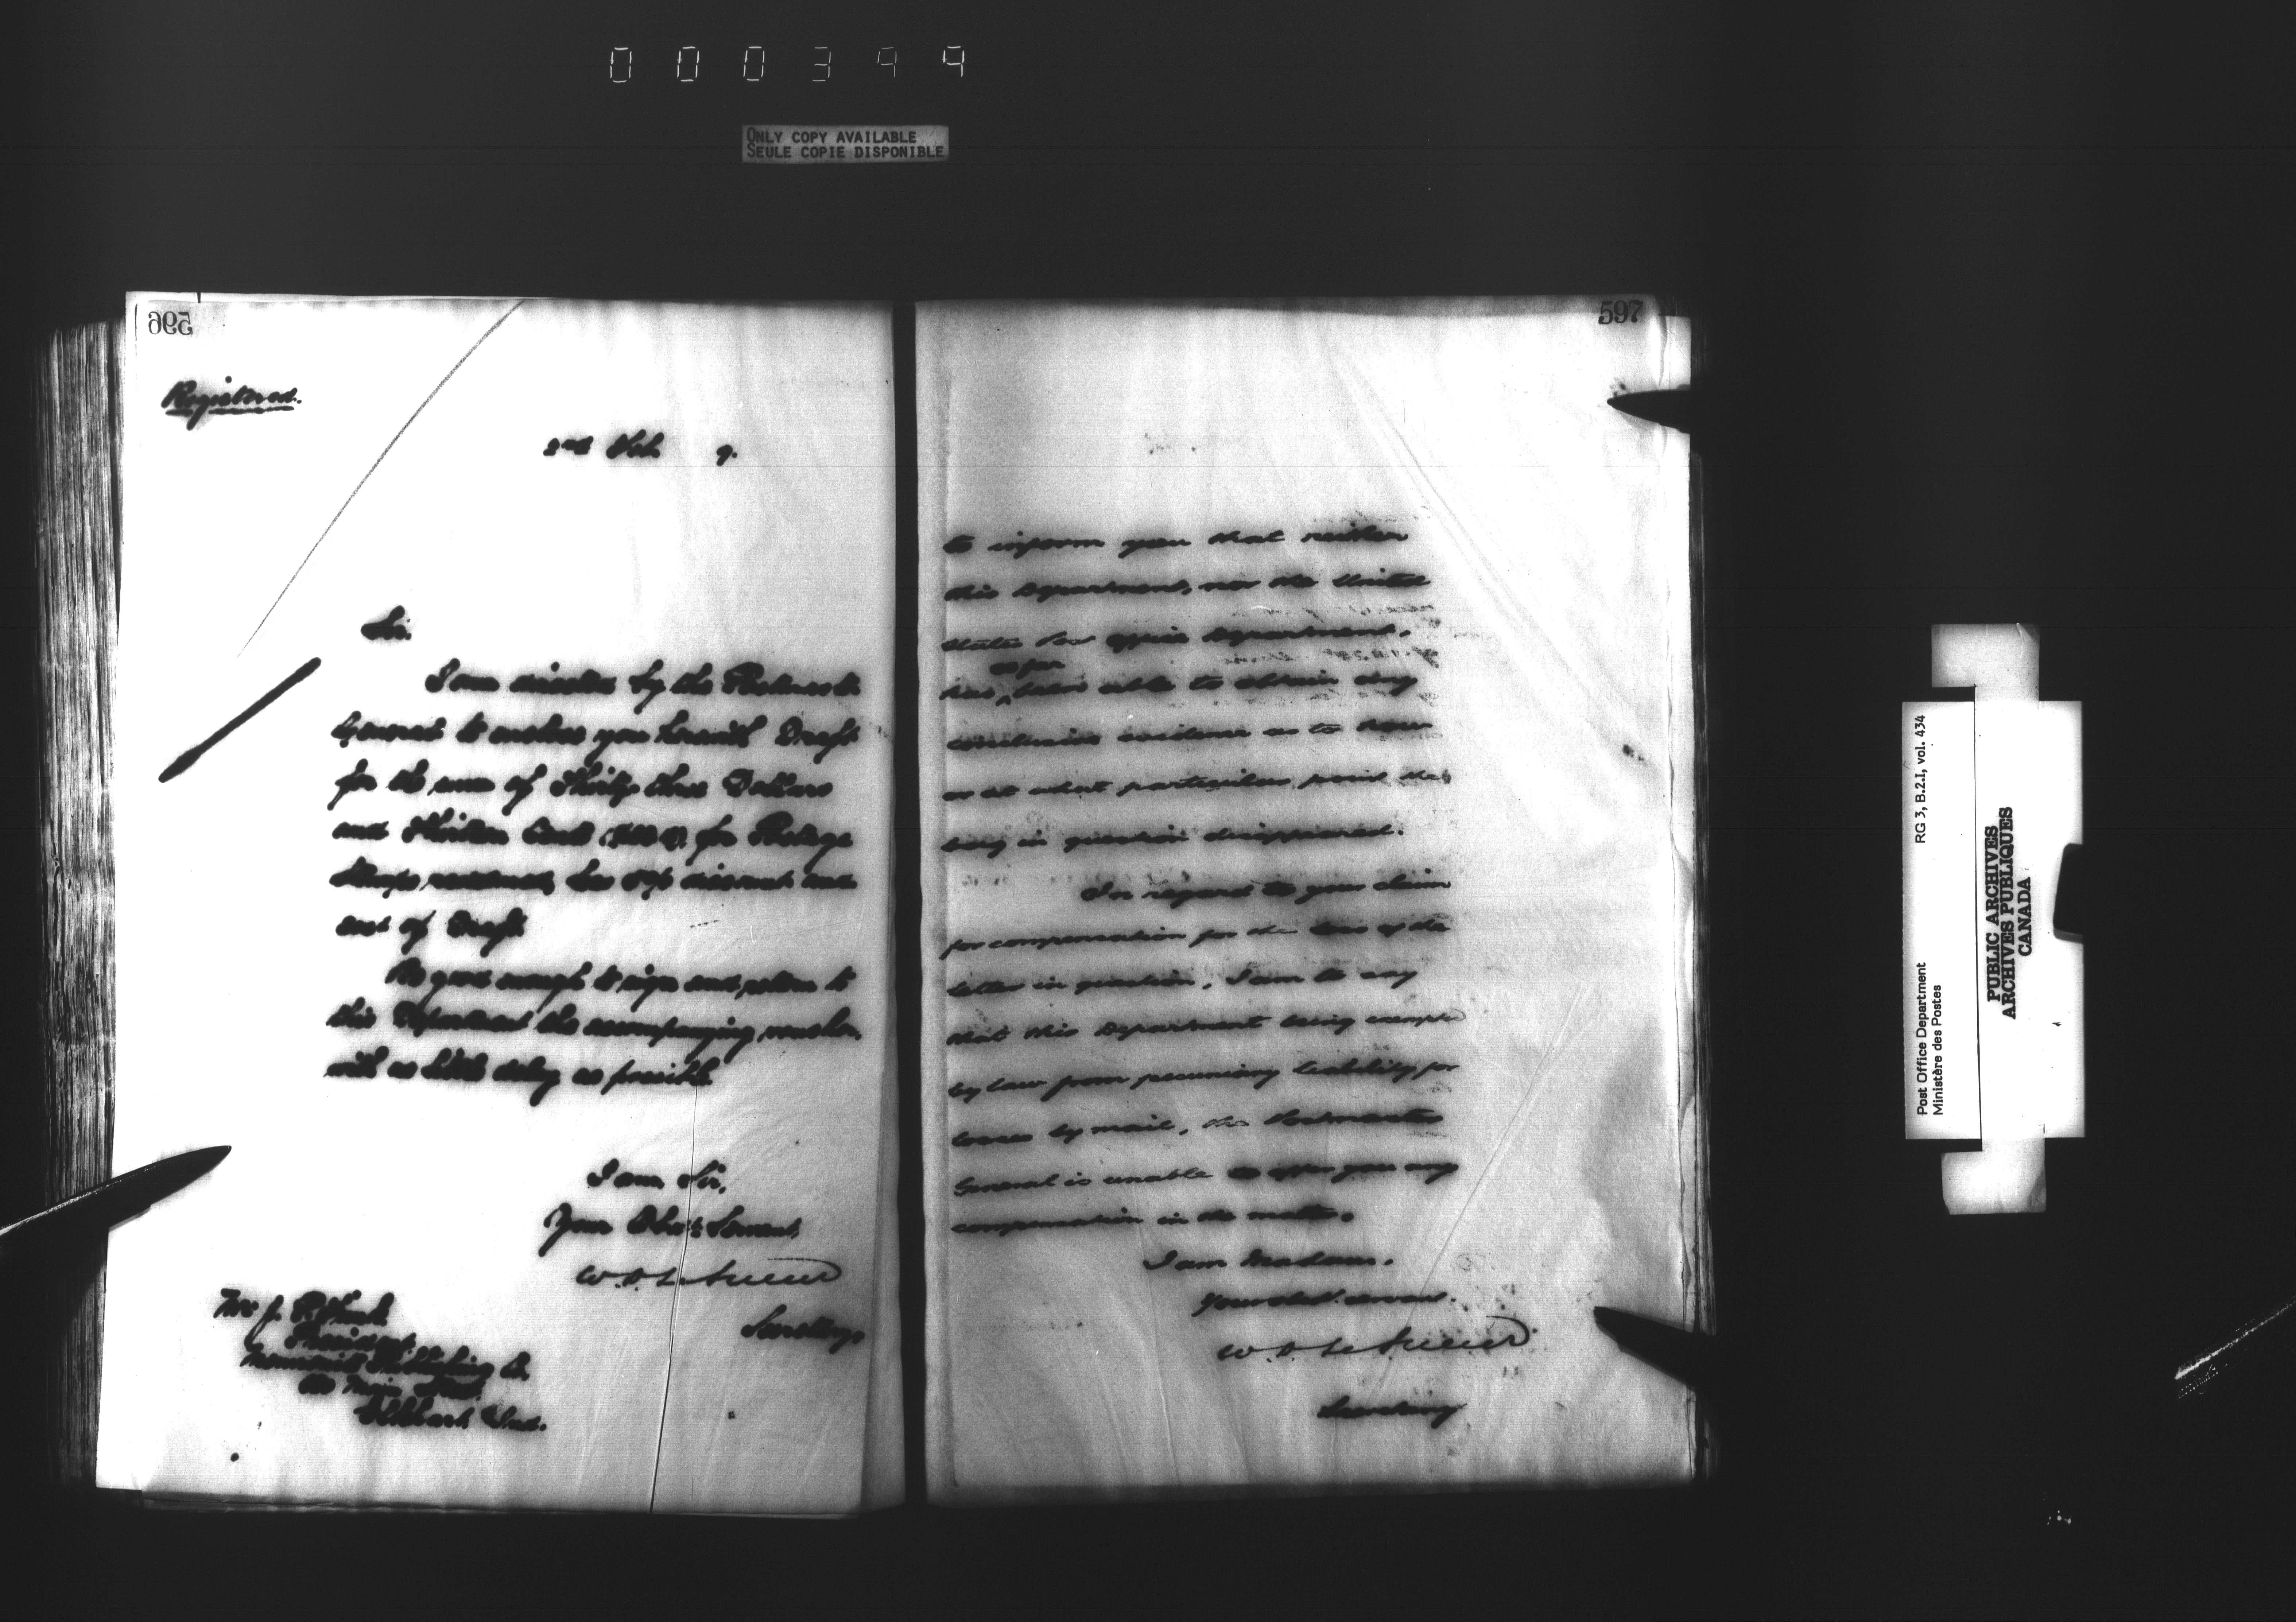 000399
ONLY COPY AVAILABLE
SEULE COPIE DISPONIBLE
596
Registered.
2nd Feb. 9.
Sir.
I am directed by the Postmaster
General to enclose you herewith Draft
for the sum of Thirty three Dollars
and Thirteen Cents for Postage
Stamps less discount and
cost of Draft
Be good enough to sign and return to
this Department the accompanying voucher
with as little delay as possible
I am Sir,
Your Obed't Servant,
W. D. LeSueur
Secretary
Mr J.
President
Mennonite Publishing Co.
Main Street
Elkhart Ind.
597
to inform you that neither
this Department, nor the United
States Post Office Department,
so far
has been able to obtain any
conclusive evidence as to how
or at what particular point the
being in question disappeared.
In regard to your claim
for compensation for the loss of the
letter in question, I am to say
that this Department being exempt
by law from pecuniary liability for
losses by mail, the Postmaster
General is unable to offer you any
compensation in the matter.
I am Madam.
Your obdt. servant.
W. D. LeSueur
Secretary
Post Office Department RG 3, B.2.I, vol. 434
Ministère des Postes
PUBLIC ARCHIVES
ARCHIVES PUBLIQUES
CANADA